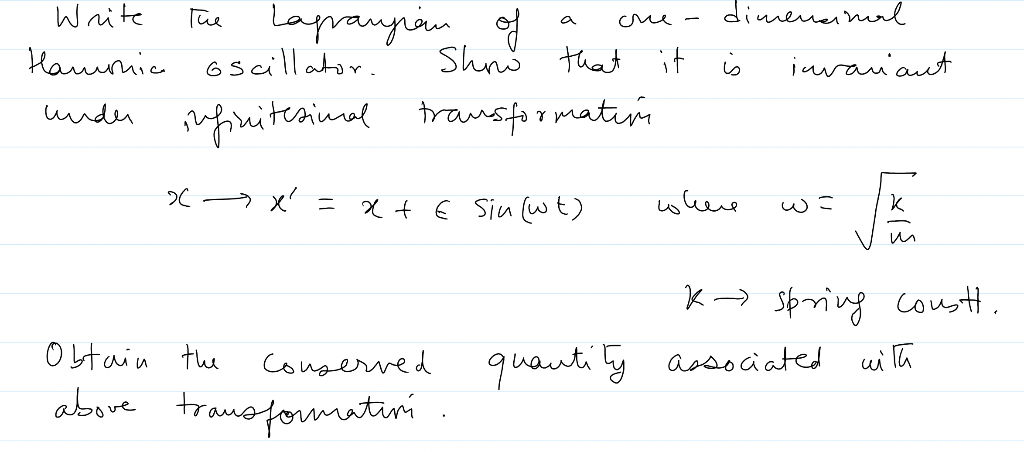 Write The Lagrangian of a one-dimensional
Harmonic oscillator. Show that it is invariant
under infinitesimal transformation
x → x' = x + ϵ sin(ωt) where ω = √(k/m)
k → spring constt.
Obtain the conserved quantity associated with
above transformation.